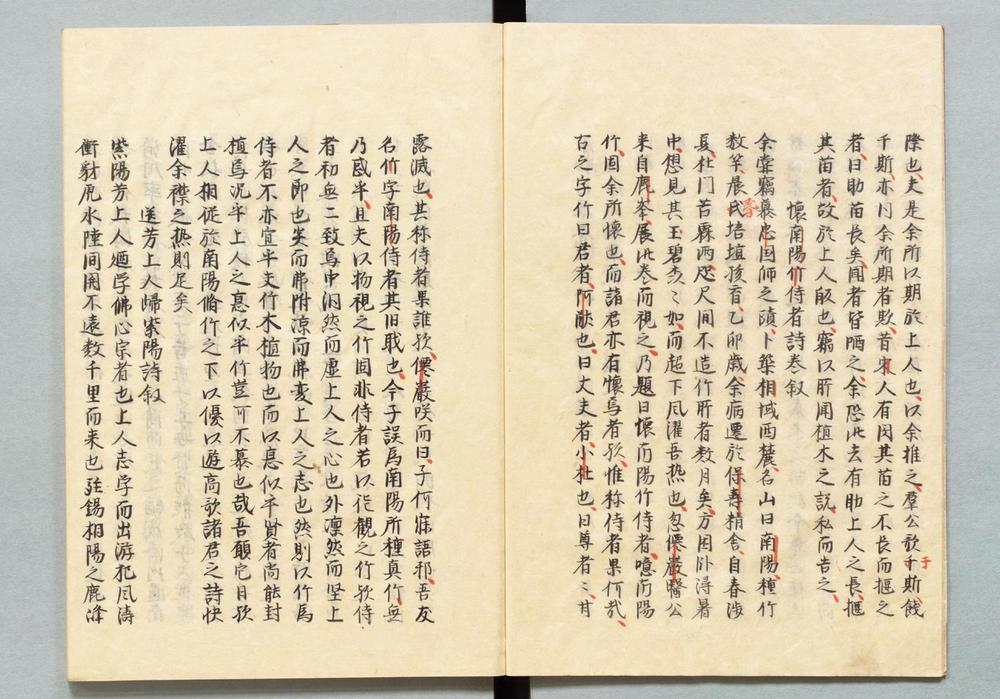 際也、夫是余所以期於上人也、以余推之、羣公歌于斯、餞
于斯、亦同余所期者歟、昔宋人有閔其苗之不長而揠之
者、曰助苗長矣、聞者皆哂之、余恐此去有助上人之長、揠
其苗者、故於上人之也、竊以所聞植木之說、私而告之、
懷南陽竹侍者詩卷叙
余嘗竊慕忠国師之蹟、卜築相城西麓、名山曰南陽、種竹
数竿、晨昏培埴孩育、乙卯歲、余病遷於保壽精舍、自春渉
夏、杜門苦霖雨、咫尺間不造竹所者数月矣、方因卧潯暑
中、想見其玉碧交〻如、而超下風濯吾熱也、忽僊巖醫公
来自鹿峯、展此卷而視之、乃題曰懷南陽竹侍者、噫南陽
竹固余所懷也、而諸君亦有懷焉者歟、惟称侍者果何哉、
古之字竹曰君者、阿猷也、曰丈夫者、小杜也、曰尊者〻、甘
露滅也、其称侍者果誰歟、僊巖咲而曰、子何寐語邪、吾友
名竹、字南陽、侍者其旧職也、今子誤為南陽所種真竹、無
乃惑乎、且夫以物視之、竹固非侍者、若以從觀之、竹欤侍
者初無二致焉、中洞然而虛、上人之心也、外凛然而堅、上
人之節也、実而弗附、凉而弗憂、上人之志也、然則以竹為
侍者、不亦宜乎、夫竹木植物也、而以悳似乎賢者、尚能封
植焉、况乎上人之悳似乎竹、豈可不慕也哉、吾願它日欤
上人相從於南陽脩竹之下、以優以遊、高歌諸君之詩、快
濯余襟之熱則足矣
送芳上人歸紫陽詩叙
紫陽芳上人廼学佛心宗者也、上人志学而出游、犯風濤
衝豺虎、水陸間関、不遠数千里而来也、弛錫相陽之鹿峰